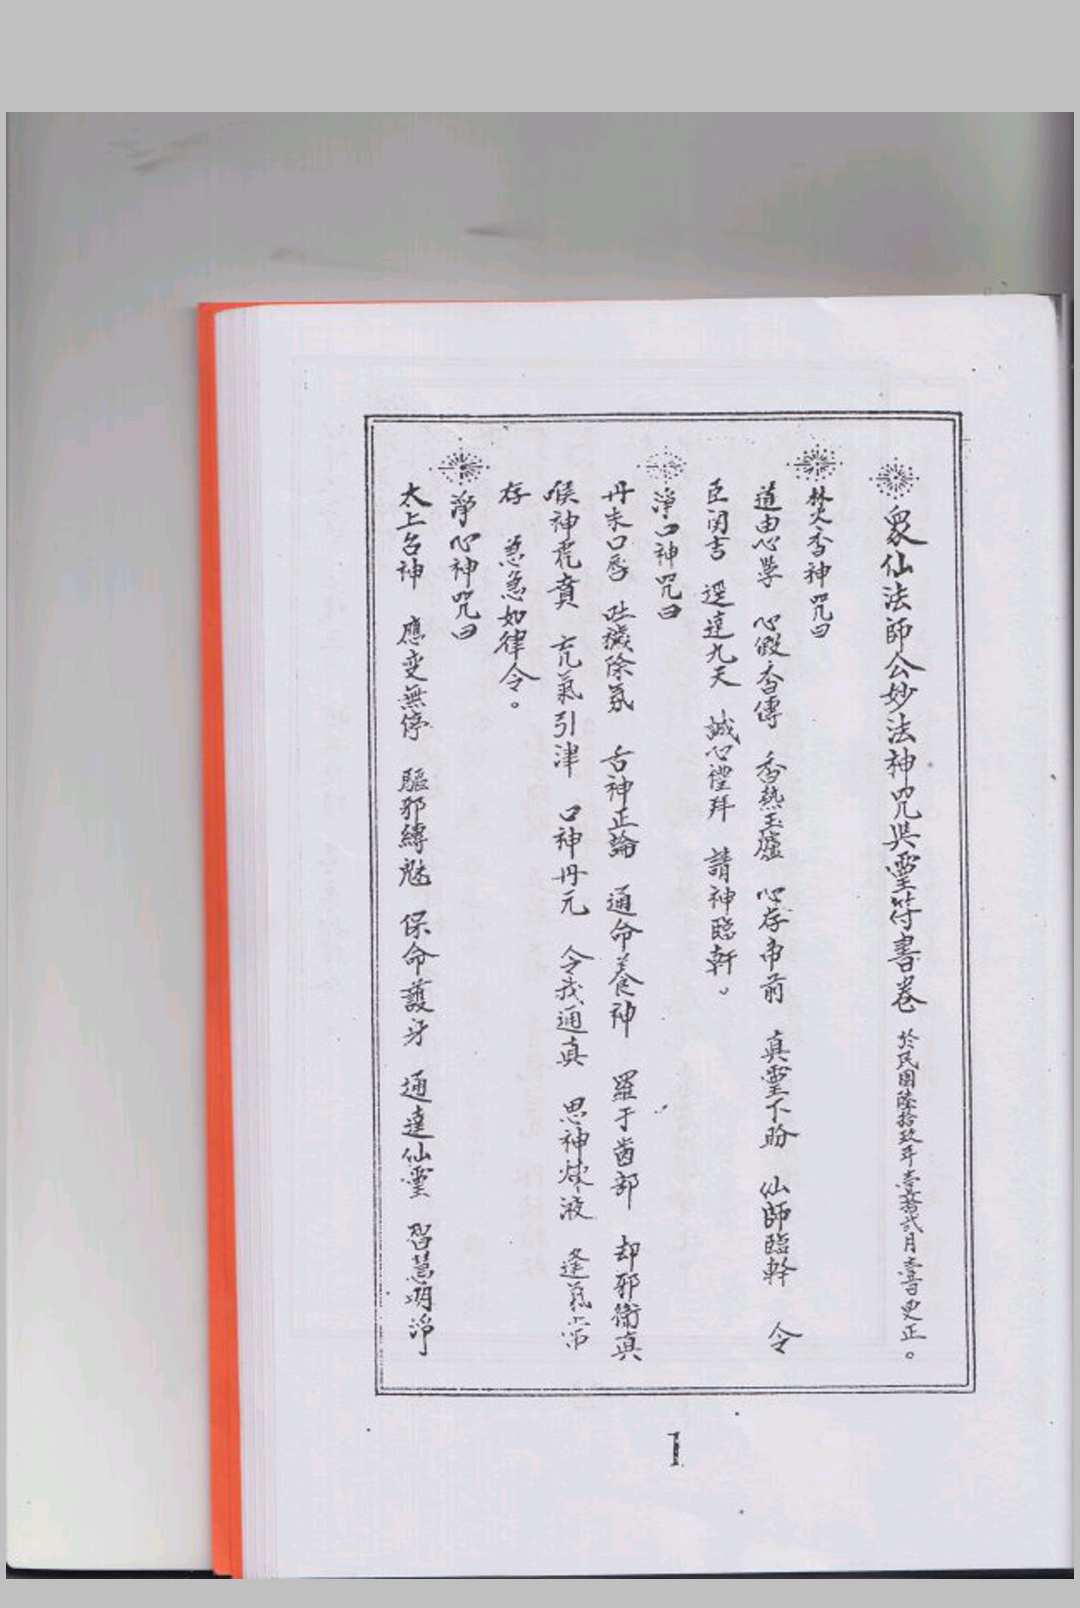 衆仙法師公妙法神咒與靈符書卷 於民國陸拾玖年壹拾貳月壹日更正。
焚香神咒曰
道由心學 心假香傳 香熱玉爐 心存帝前 真靈下盼 仙師臨軒 令
臣関告 逕達九天 誠心禮拜 請神臨軒。
淨口神咒曰
丹朱口唇 吐穢除氛 舌神正論 通命養神 羅于齒部 却邪衛真
喉神虎賁 炁氣引津 口神丹元 令我通真 思神煉液 逢氣常
存 急急如律令。
淨心神咒曰
太上台神 應变無停 驅邪縛魅 保命護身 通達仙靈 智慧明淨
1